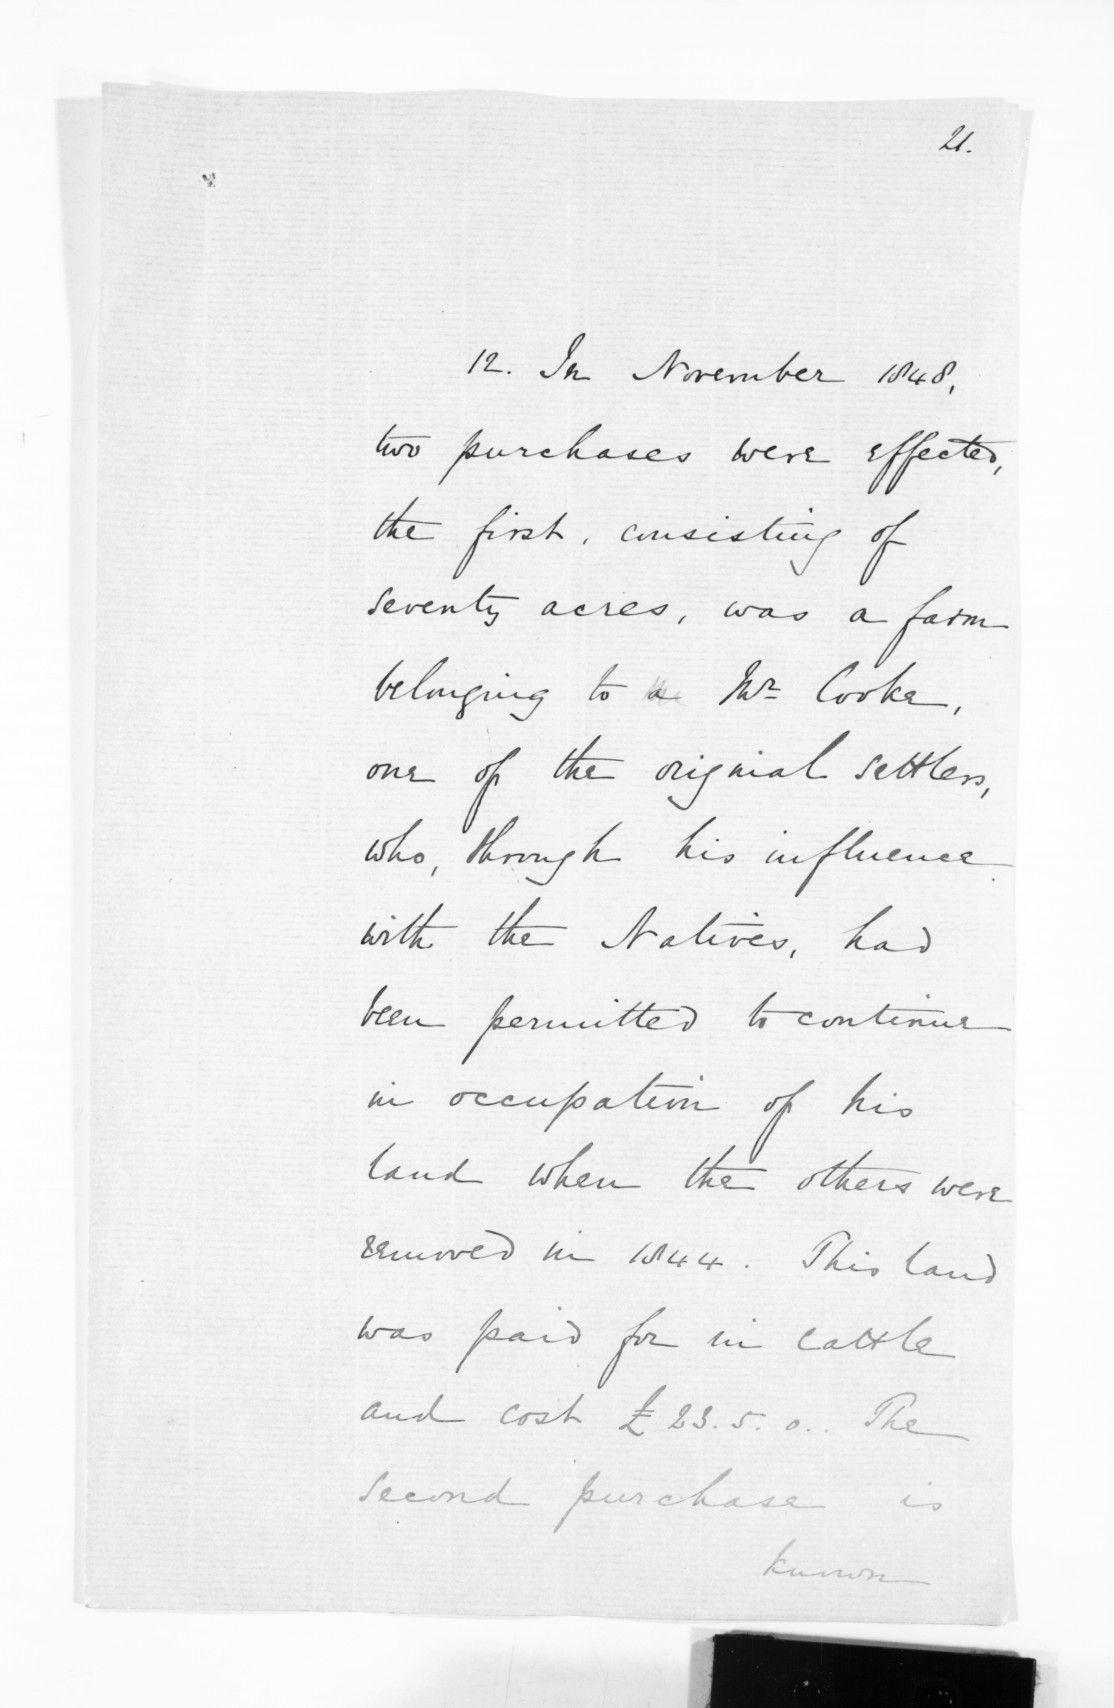 21.
12. In November 1848,
two purchases were effected,
the first, consisting of
seventy acres, was a farm
belonging to a Mr Cooke,
one of the original settlers,
who, through his influence
with the Natives, had
been permitted to continue
in occupation of his
land when the others were
removed in 1844. This land
was paid for in cattle
and cost £23.5.0.. The
second purchase is
known